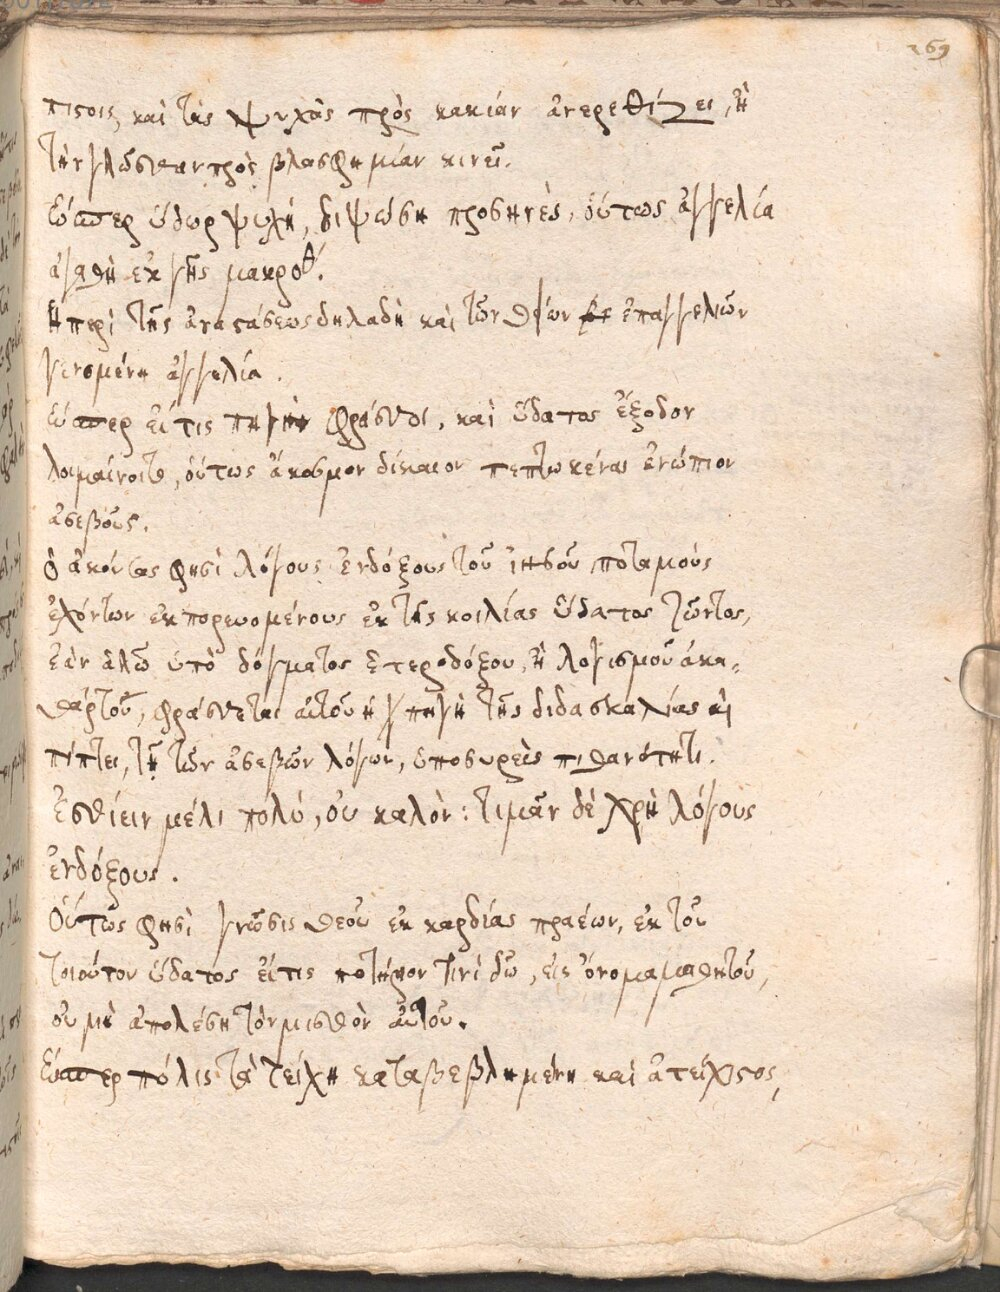 269
πιστοις, καὶ τὰς ψυχὰς πρὸς κακίαν ἀνερεθίζει, ἢ
τὴν γλῶσσαν πρὸς βλασφημίαν κινεῖ.
ὥσπερ ὕδωρ ψυχῇ, διψώσῃ προσηνὲς, οὕτως ἀγγελία
ἀγαθὴ ἐκ γῆς μακρόθ.
ἡ περὶ τῆς ἀναστάσεως δηλαδὴ καὶ τῶν θείων ἐπαγγελιῶν
γενομένη ἀγγελία.
ὥσπερ εἴ τις πηγὴν φράσσοι, καὶ ὕδατος ἔξοδον
λοιμαίνοιτο, οὕτως ἄκοσμον δίκαιον πεπτωκέναι ἐνώπιον
ἀσεβοῦς.
ὁ ἀκούσας φησὶ λόγους ἐνδόξους τοῦ ἰησοῦ, ποταμοὺς
ἐχόντων ἐκπορευομένους ἐκ τῆς κοιλίας ὕδατος ζῶντος,
ἐὰν ἁλῶ ὑπὸ δόγματος ἑτεροδόξου, ἢ λογισμοῦ ἀκα-
θάρτου, φράσσεται αὐτοῦ ἡ πηγὴ τῆς διδασκαλίας καὶ
πίπτει, τῇ τῶν ἀσεβῶν λόγων, ὑποσυρεὶς πιθανότητι.
Ἐσθίειν μέλι πολύ, οὐ καλὸν: τιμᾶν δὲ χρὴ λόγους
ἐνδόξους.
Οὕτως φησὶ γνῶσις θεοῦ ἐκ καρδίας πραέων, ἐκ τοῦ
τοιούτου ὕδατος εἴ τις ποτήριον τινὶ δῶ, εἰς ὄνομα μαθητοῦ,
οὐ μὴ ἀπολέσῃ τὸν μισθὸν αὐτοῦ.
ὥσπερ πόλις τὰ τείχη καταβεβλημένη καὶ ἀτείχιστος,